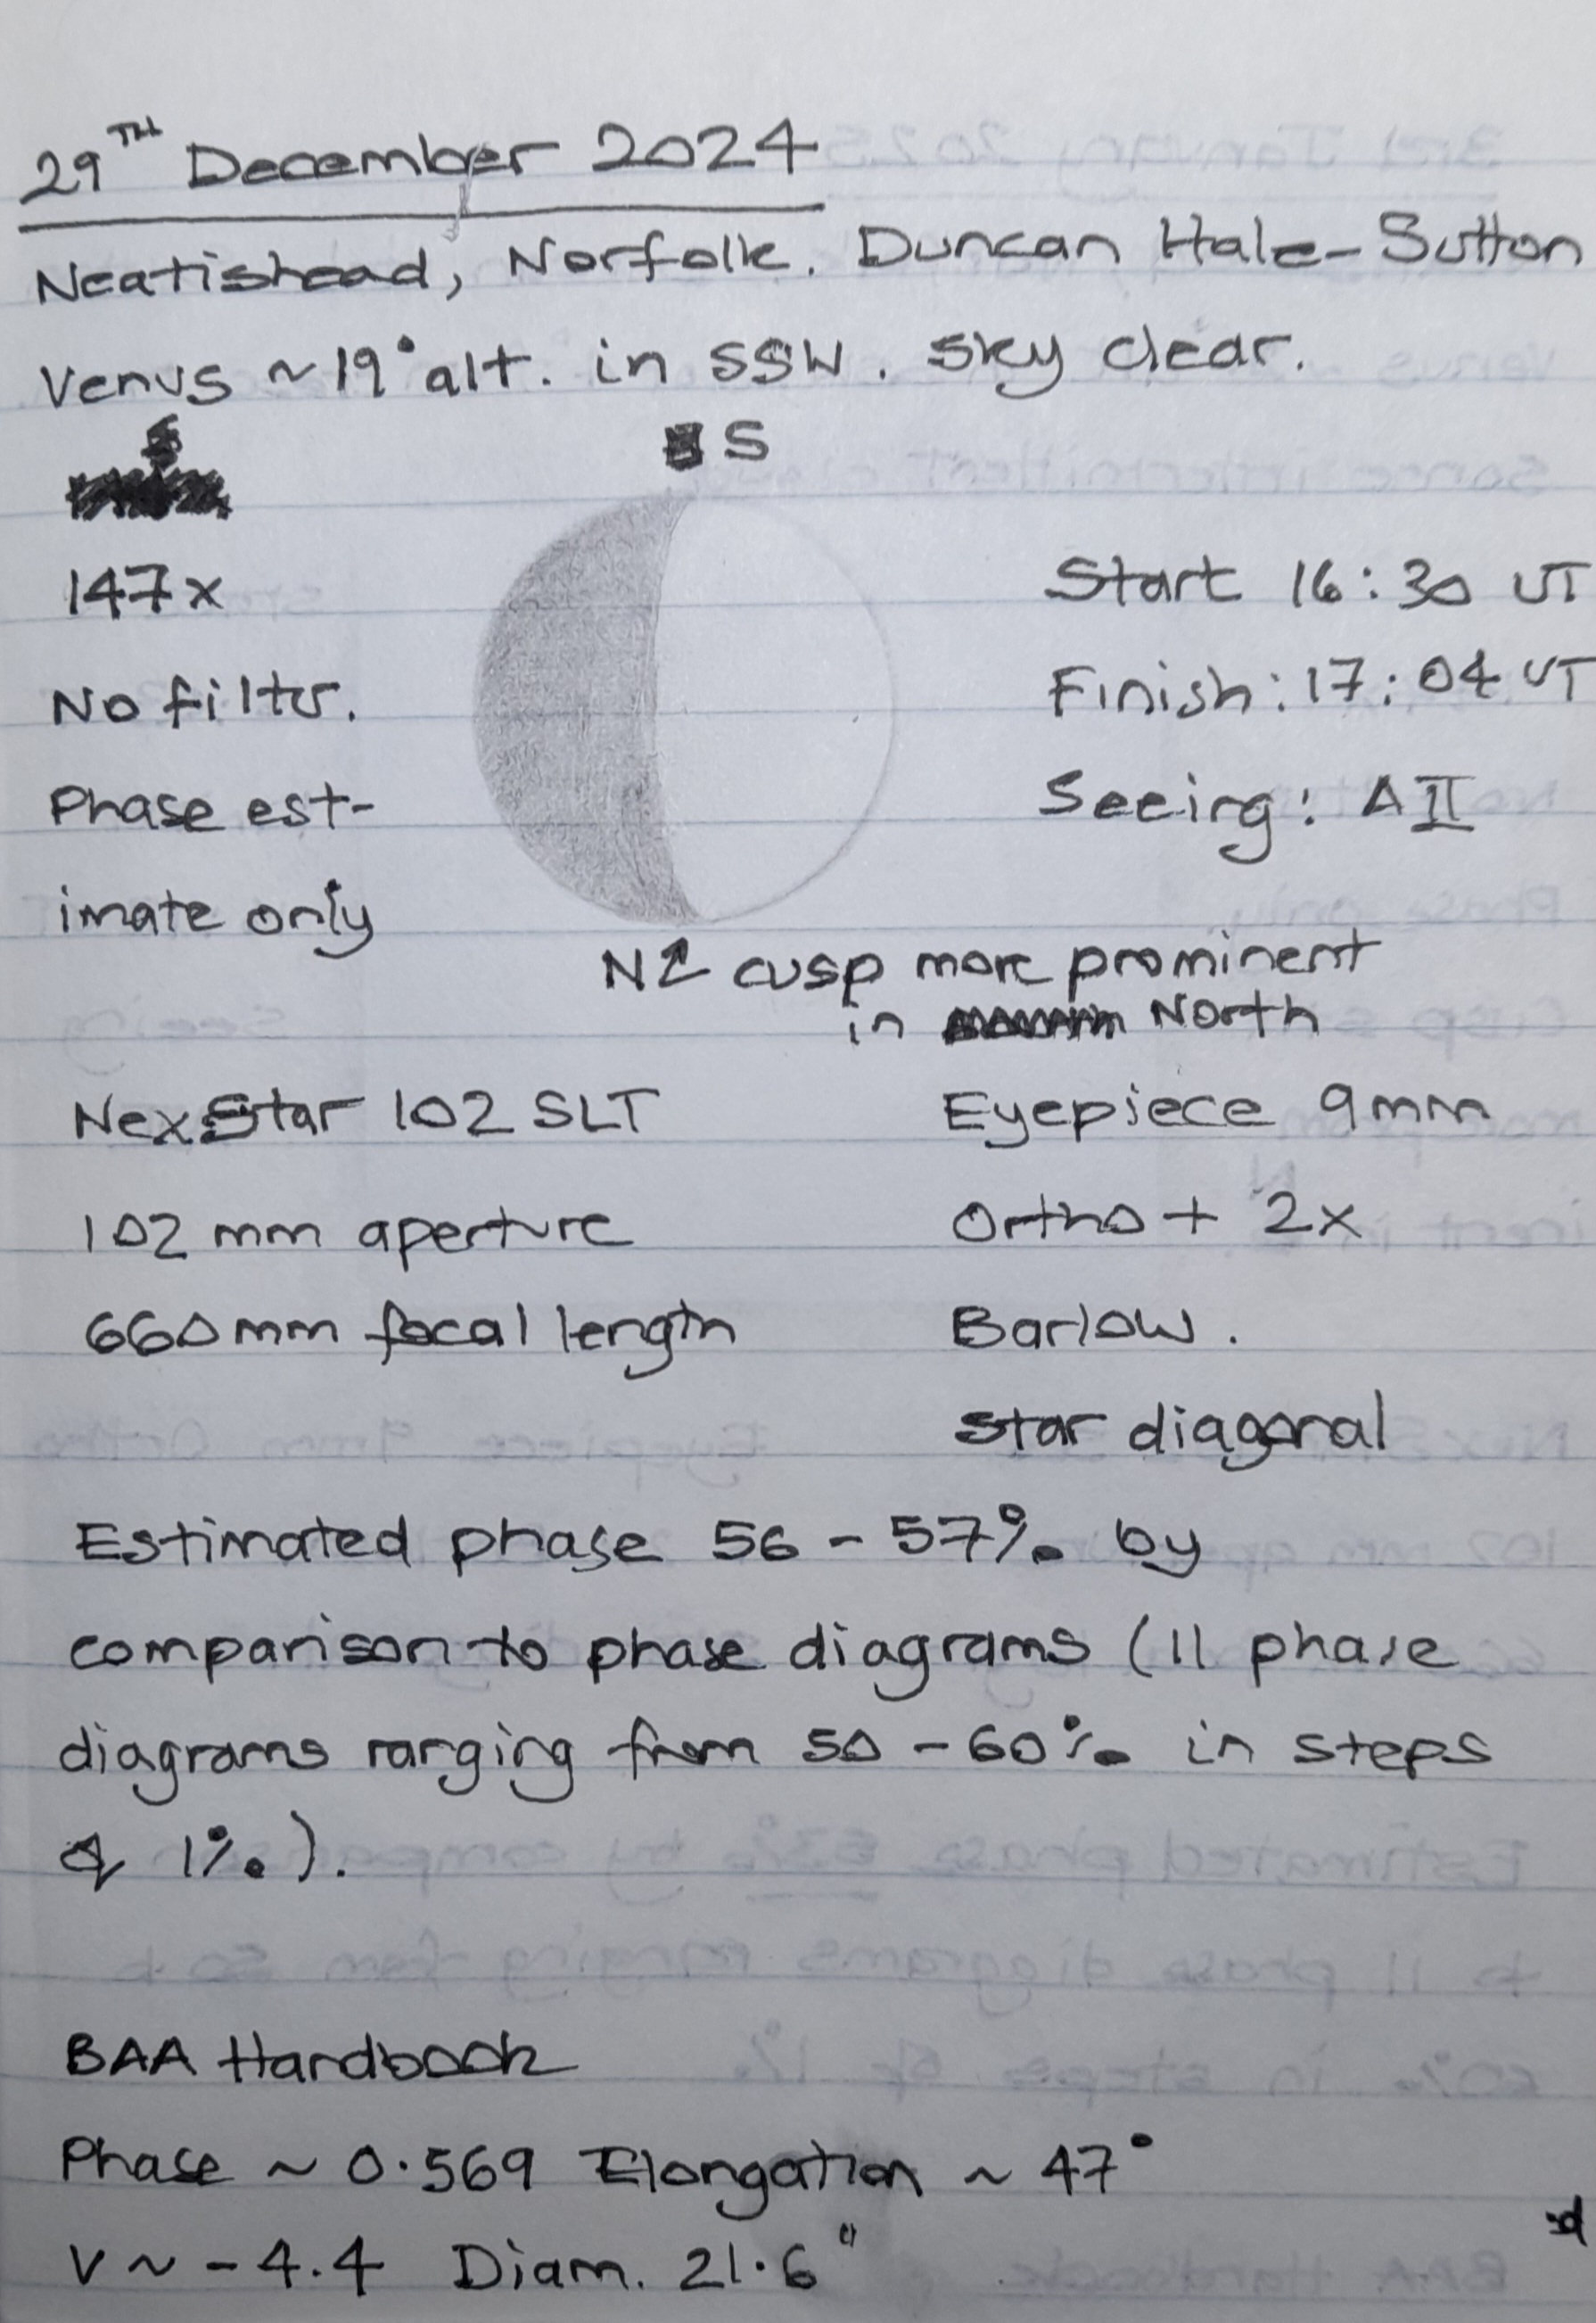 29TH December 2024
Neatishead, Norfolk. Duncan Hale-Sutton
Venus ~19° alt. in SSW. Sky clear.
S
147x
Start 16:30 UT
No filter.
Finish: 17:04 UT
Phase est-
Seeing: AII
imate only
N↑ cusp more prominent
in North
NexStar 102 SLT
Eyepiece 9mm
102 mm aperture
Ortho + 2x
660mm focal length
Barlow.
Star diagonal
Estimated phase 56 - 57% by
comparison to phase diagrams (11 phase
diagrams ranging from 50 - 60% in steps
of 1%).
BAA Handbook
Phase ~ 0.569 Elongation ~ 47°
V ~ -4.4 Diam. 21.6"